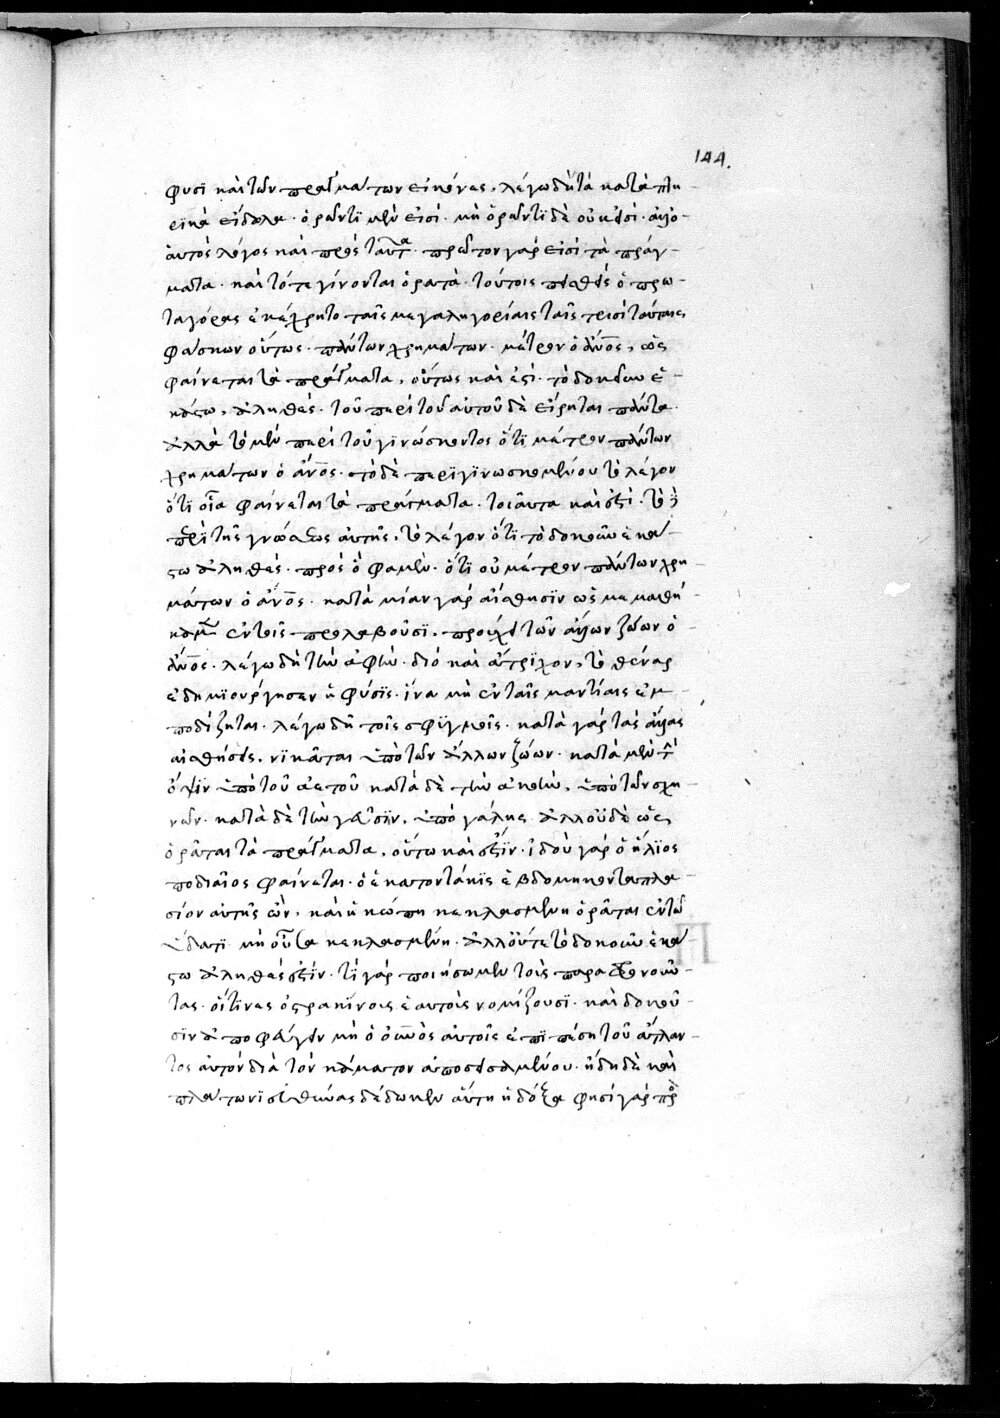 144.
φυσι και των πραγμάτων εικόνες, λέγω δὴ τὰ κατὰ πτη-
εϊκὰ είδωλα· ὁρῶντι μὲν εἰσί· μὴ ὁρῶντϊ δὲ οὐκ εἰσί·
αυτὸς λόγος καὶ πρὸς ταῦτα· πρῶτον γάρ εἰσι τὰ πράγ-
ματα· καὶ τότε γίνονται ὁρατὰ· τούτοις πεισθεὶς ὁ πρω-
ταγόρας ἐκέχρητο ταῖς μεγαληγορίαις ταῖς τρισὶ ταύταις
φάσκων οὕτως· πάντων χρημάτων μέτρον ὁ ἄνος, ὡς
φαίνεται τὰ πράγματα, οὕτως καὶ ἐστί· τὸ δοκοῦν ἑ-
κάστω, ἀληθές· τοῦ περὶ τοῦ αὐτοῦ δὲ εἴρηται πάντα
ἀλλὰ τὸ μὲν περὶ τοῦ γϊνώσκοντος ὅτι μέτρον πάντων
χρημάτων ὁ ἄνος· τὸ δὲ περὶ γϊνωσκομένου τὸ λέγον
ὅτϊ οἷα φαίνεται τὰ πράγματα· τοιαῦτα καὶ ἐστί· τὸ
περὶ τῆς γνώσεως αὐτῆς, τὸ λέγον ὅτϊ τὸ δοκοῦν ἑκά-
στω ἀληθές· πρὸς ὅ φαμὲν· ὅτι οὐ μέτρον πάντων χρη-
μάτων ὁ ἄνος· κατὰ μίαν γάρ αἴσθησϊν ὡς μεμαθή
καμεν ἐν τοῖς προλαβοῦσϊ, προέχει τῶν ἄλλων ζώων ὁ
ἄνος· λέγω δὴ τὴν ἁφὴν· διὸ καὶ ἄτριχον, τὸ θέναρ
ἐδημϊούργησεν ἡ φύσϊς· ἵνα μὴ ἐν ταῖς μαντίαις ἐμ-
ποδίζηται· λέγω δὴ τοῖς σφϊγμοῖς· κατὰ γὰρ τὰς ἄλλας
αἰσθήσεις, νϊκᾶται ὑπὸ τῶν ἄλλων ζώων· κατὰ μὲν τὴν
ὄψϊν ὑπὸ τοῦ ἀετοῦ κατὰ δὲ τὴν ἀκοὴν, ὑπὸ τῶν χη-
νῶν· κατὰ δὲ τὴν γεῦσϊν, ὑπὸ γάλης ἀλλ' οὐδὲ ὡς
ὁρᾶται τὰ πράγματα, οὕτω καὶ ἐστϊν· ἰδοὺ γάρ ὁ ἥλϊος
ποδιαῖος φαίνεται· ὁ ἑκατοντάκϊς ἑβδομηκονταπλα-
σίον αὐτῆς ὢν, καὶ ἡ κώπη κεκλασμένη ὁρᾶται ἐν τῶ
ὕδατϊ μὴ οὖσα κεκλασμένη· ἀλλ' οὔτε τὸ δοκοῦν ἑκά
στω ἀληθές ἐστϊν· τί γάρ ποιήσωμεν τοὺς παραφρονοῦν-
τας· οἵτϊνες ὀστρακΐνους ἑαυτοὺς νομίζουσϊ· καὶ δοκοῦ-
σϊν ἀποφεύγειν μὴ ὁ οὐνὸς αὐτοῖς ἐπϊπέση τοῦ ἄτλαν-
τος αὐτὸν διὰ τὸν κάματον ἀποσεισαμένου· ἤδη δὲ καὶ
πλάτωνϊ σεθένας δέδωκεν αὕτη ἡ δόξα φησὶ γὰρ πρὸς